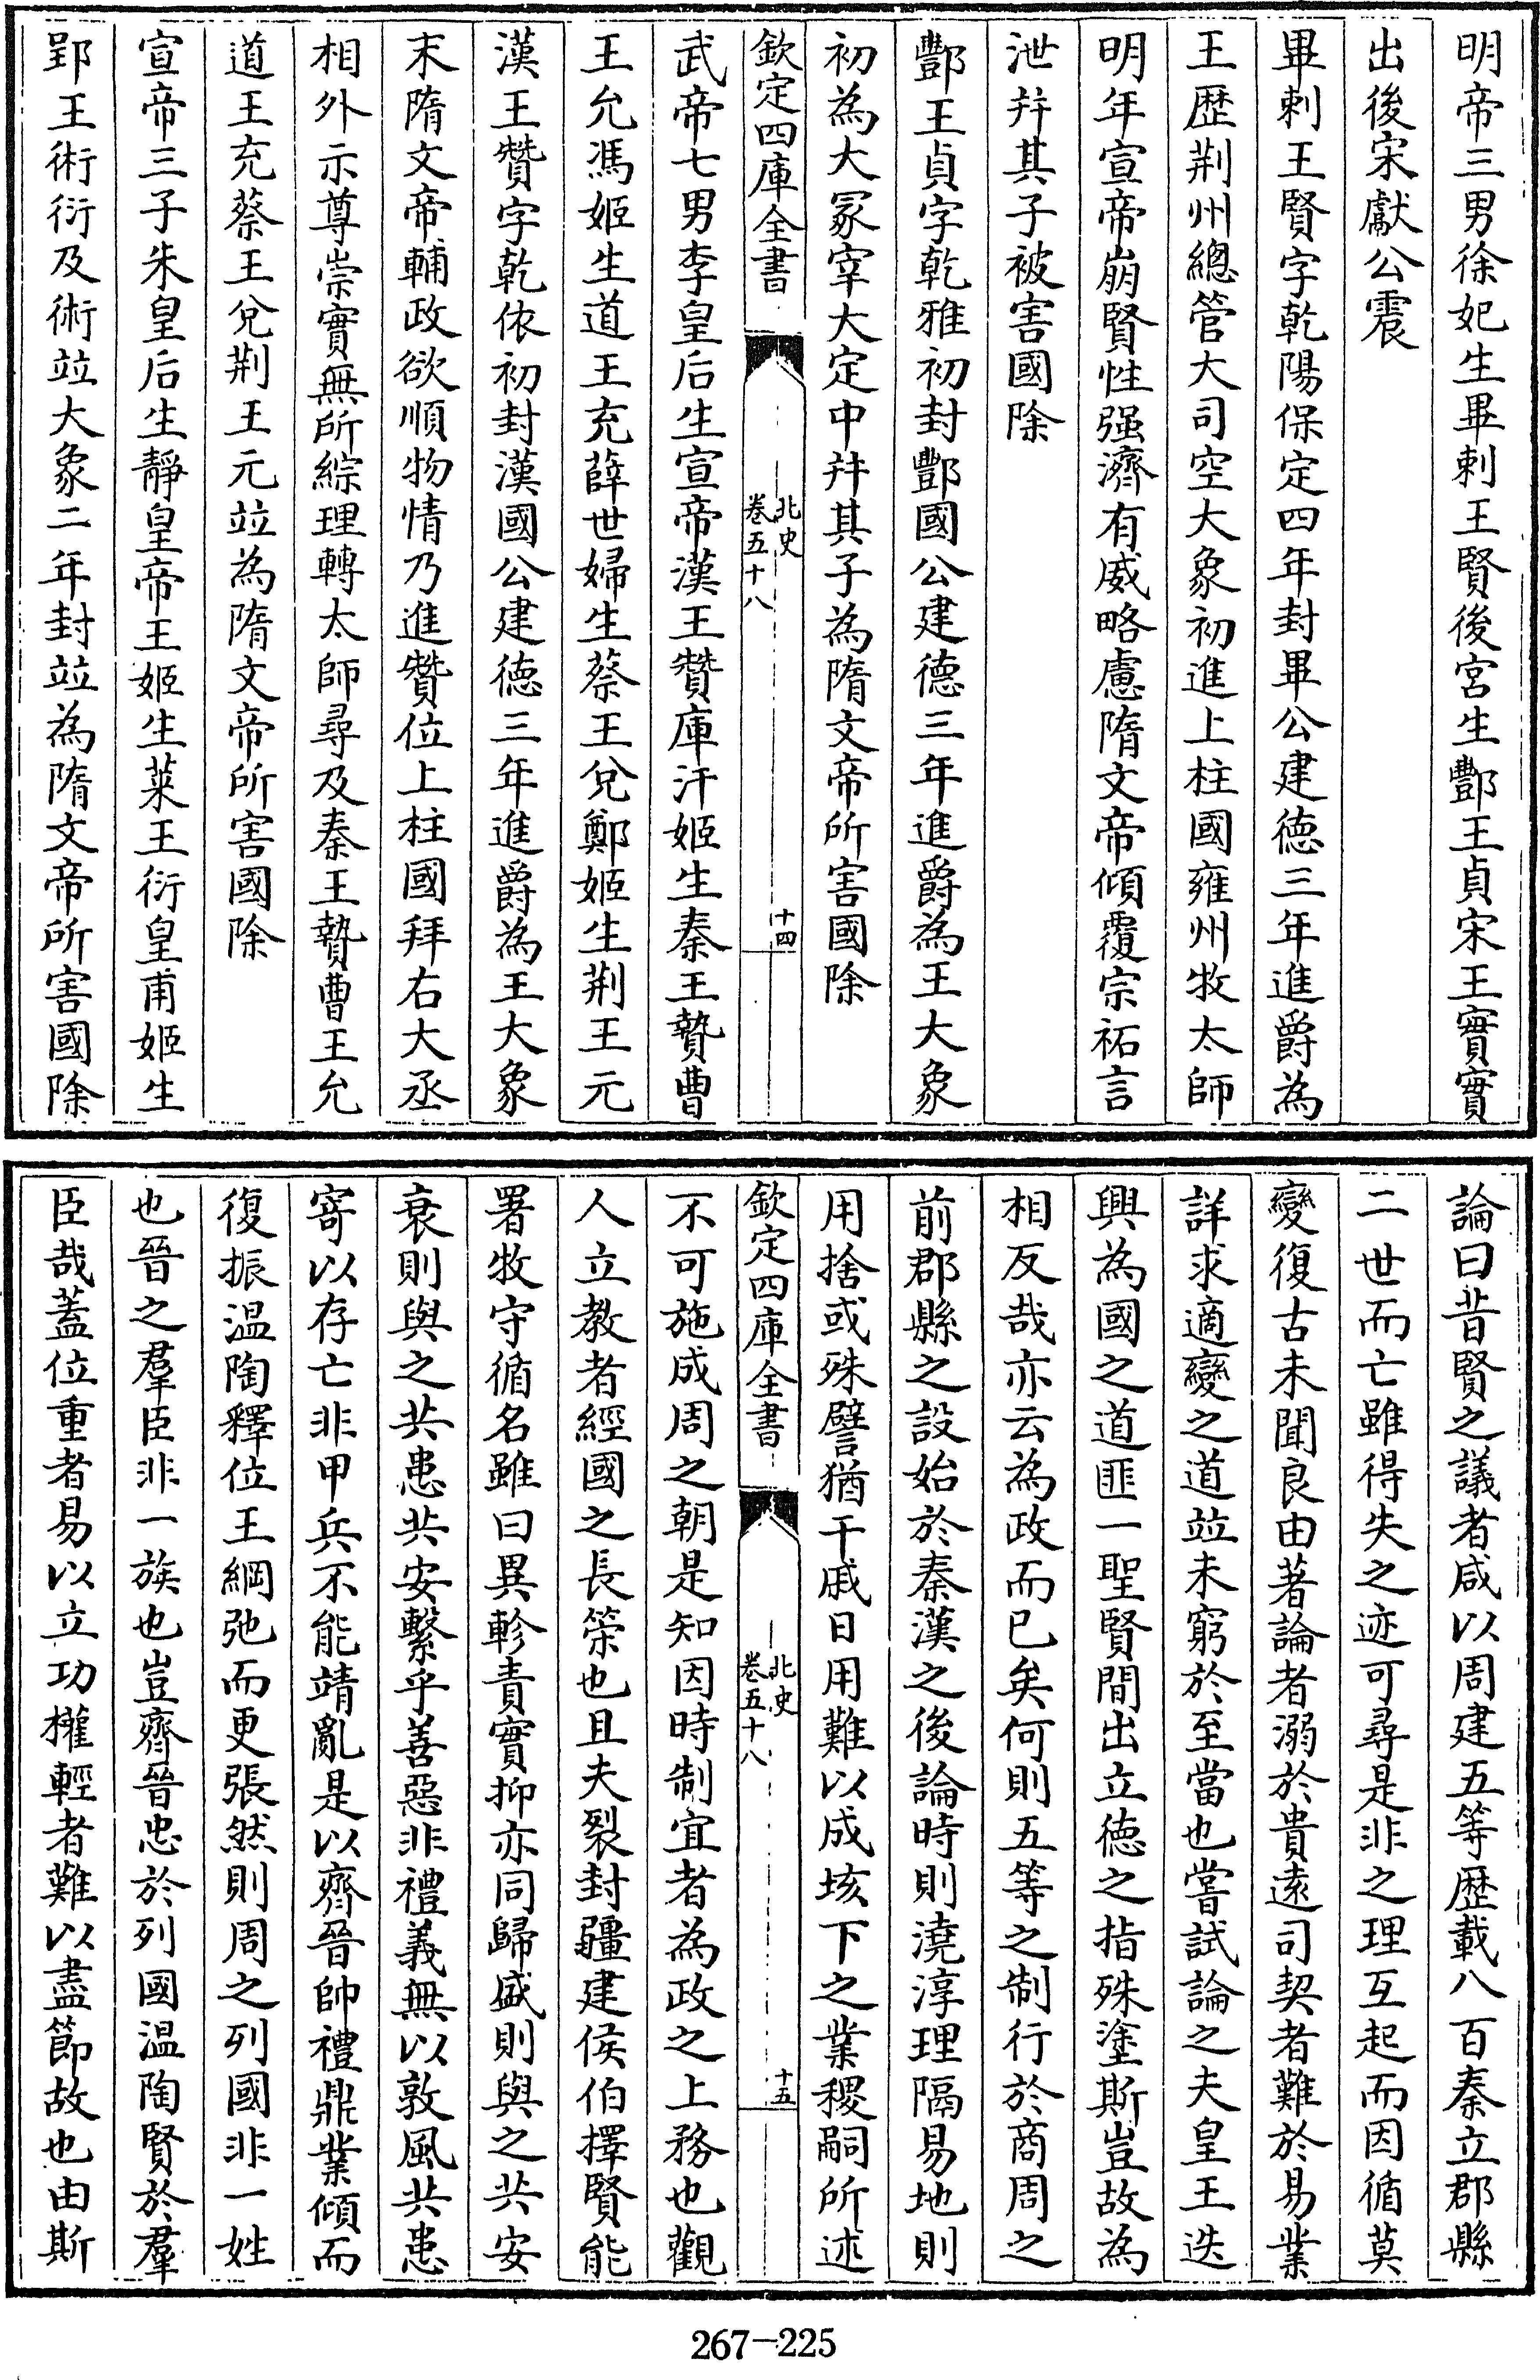 明帝三男徐妃生畢剌王賢後宮生酆王貞宋王實實
出後宋獻公震
畢剌王賢字乾陽保定四年封畢公建德三年進爵為
王歴荆州總管大司空大象初進上柱國雍州牧太師
明年宣帝崩賢性强濟有威略慮隋文帝傾覆宗祏言
泄并其子被害國除
酆王貞字乾雅初封酆國公建德三年進爵為王大象
初為大冢宰大定中并其子為隋文帝所害國除
欽定四庫全書
北史
卷五十八
十四
武帝七男李皇后生宣帝漢王贊庫汗姬生秦王贄曹
王允馮姬生道王充薛世婦生蔡王兌鄭姬生荆王元
漢王贊字乾依初封漢國公建德三年進爵為王大象
末隋文帝輔政欲順物情乃進贊位上柱國拜右大丞
相外示尊崇實無所綜理轉太師尋及秦王贄曹王允
道王充蔡王兌荆王元竝為隋文帝所害國除
宣帝三子朱皇后生靜皇帝王姬生萊王衍皇甫姬生
郢王術衍及術竝大象二年封竝為隋文帝所害國除
論曰昔賢之議者咸以周建五等歴載八百秦立郡縣
二世而亡雖得失之迹可尋是非之理互起而因循莫
變復古未聞良由著論者溺於貴遠司契者難於易業
詳求適變之道竝未窮於至當也嘗試論之夫皇王迭
興為國之道匪一聖賢間出立德之指殊塗斯豈故為
相反哉亦云為政而已矣何則五等之制行於商周之
前郡縣之設始於秦漢之後論時則澆淳理隔易地則
用捨或殊譬猶干戚日用難以成垓下之業稷嗣所述
欽定四庫全書
北史
卷五十八
十五
不可施成周之朝是知因時制宜者為政之上務也觀
人立教者經國之長策也且夫裂封疆建侯伯擇賢能
署牧守循名雖曰異軫責實抑亦同歸盛則與之共安
衰則與之共患共安繫乎善惡非禮義無以敦風共患
寄以存亡非甲兵不能靖亂是以齊晉帥禮鼎業傾而
復振溫陶釋位王綱弛而更張然則周之列國非一姓
也晉之羣臣非一族也豈齊晉忠於列國溫陶賢於羣
臣哉蓋位重者易以立功權輕者難以盡節故也由斯
267-225